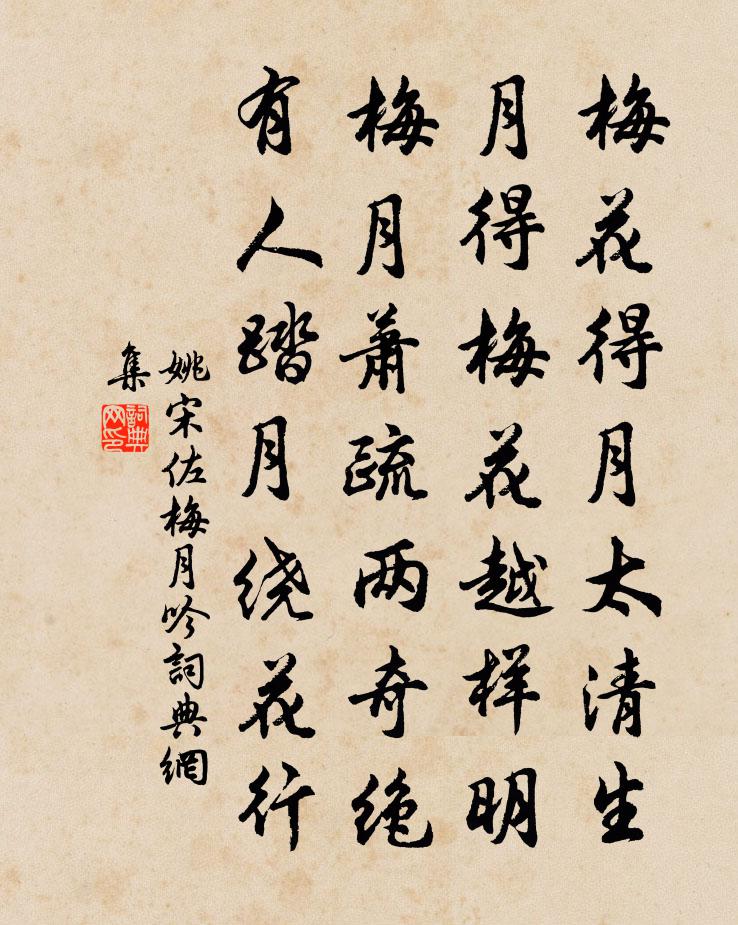 梅花得月太清生
月得梅花越样明
梅月萧疏两奇绝
有人踏月绕花行
姚宋佐梅月吟詞典網
集
詞典
网印